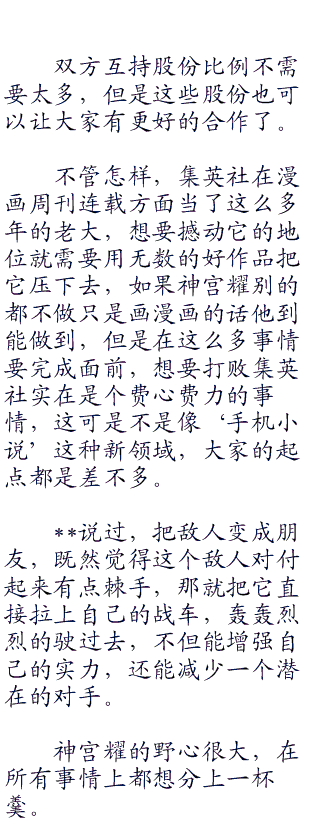 双方互持股份比例不需
要太多，但是这些股份也可
以让大家有更好的合作了。
不管怎样，集英社在漫
画周刊连载方面当了这么多
年的老大，想要撼动它的地
位就需要用无数的好作品把
它压下去，如果神宫耀别的
都不做只是画漫画的话他到
能做到，但是在这么多事情
要完成面前，想要打败集英
社实在是个费心费力的事
情，这可是不是像‘手机小
说’这种新领域，大家的起
点都是差不多。
**说过，把敌人变成朋
友，既然觉得这个敌人对付
起来有点棘手，那就把它直
接拉上自己的战车，轰轰烈
烈的驶过去，不但能增强自
己的实力，还能减少一个潜
在的对手。
神宫耀的野心很大，在
所有事情上都想分上一杯
羹。